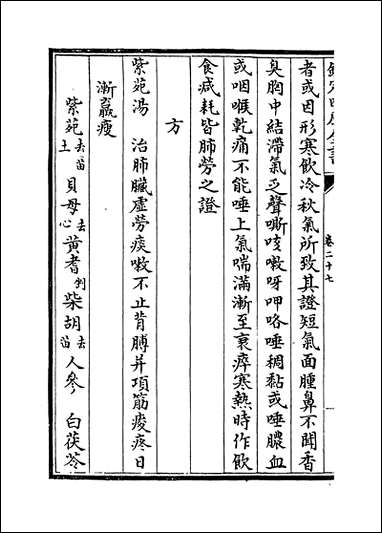 欽定四庫全書
卷二十七
者或因形寒飲冷秋氣所致其證短氣面腫鼻不聞香
臭胸中結滯氣乏聲嘶咳嗽呀呷咯唾稠黏或唾膿血
或咽喉乾痛不能唾上氣喘滿漸至衰瘁寒熱時作飲
食減耗皆肺勞之證
方
紫苑湯 治肺臟虛勞痰嗽不止背膊并項筋痠疼日
漸羸瘦
紫苑去苗土 貝母去心 黃耆剉 柴胡去苗 人參 白茯苓